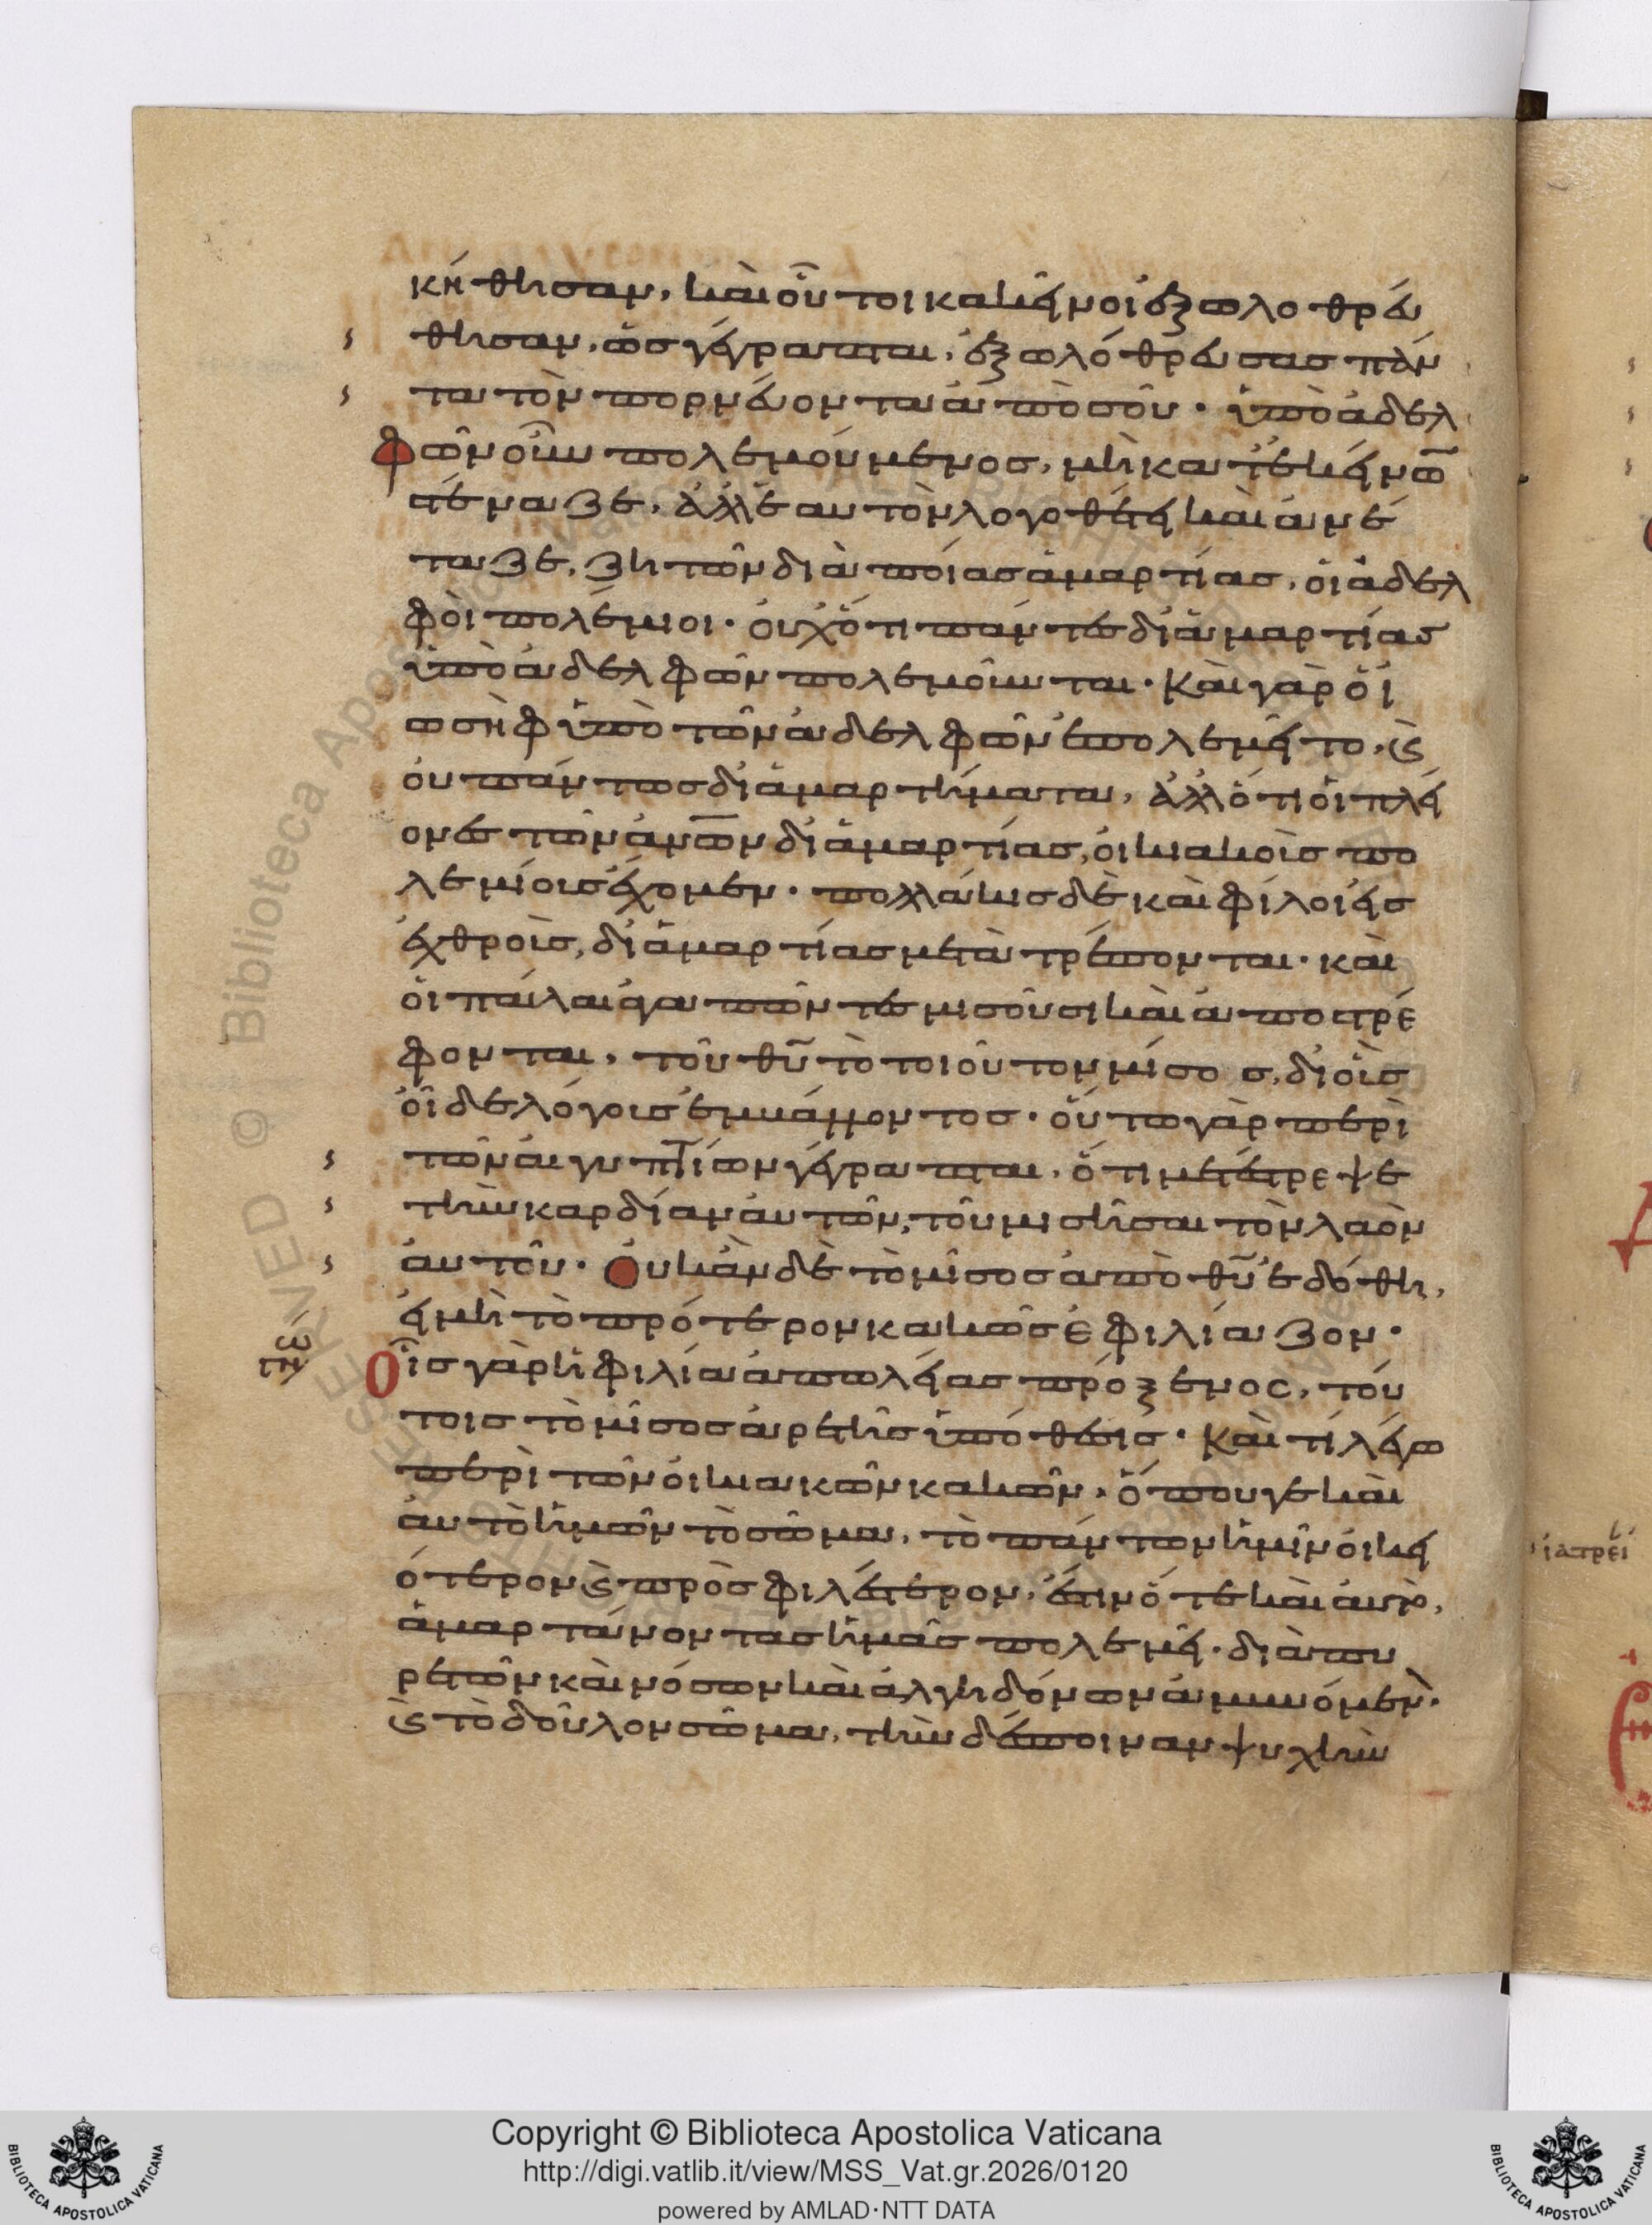 κήθησαν, καὶ οὗτοι κακεῖνοι ἐξωλοθρεύ
θησαν, ὡς γέγραπται, ἐξωλόθρευσας πάν
τα τὸν πορνεύοντα ἀπὸ σοῦ. ὑπὸ ἀδελ
φῶν οὖν πολεμούμενος, μὴ κατ' ἐκείνων
στέναζε, ἀλλ' ἑαυτὸν λογοθέτει καὶ ἀνέ
ταζε, ζητῶν διὰ ποίας ἁμαρτίας, οἱ ἀδελ
φοὶ πολέμιοι. οὐχ ὅτι πάντες δι' ἁμαρτίας
ὑπὸ ἀδελφῶν πολεμοῦνται. Καὶ γὰρ ὁ ἰ
ωσὴφ ὑπὸ τῶν ἀδελφῶν ἐπολεμεῖτο, καὶ
οὐ πάντως δι' ἁμαρτήματα, ἀλλ' ὅτι οἱ πλεί
ονες τῶν ἀνων δι' ἁμαρτίας, οἰκιακοῖς πο
λεμίοις ἔχομεν. πολλάκις δὲ καὶ φίλοι εἰς
ἐχθροὺς, δι' ἁμαρτίας μετατρέπονται. καὶ
οἱ πάλαι ἀγαπῶντες μισοῦσι καὶ ἀποστρέ
φονται, τοῦ θυ τὸ τοιοῦτον μίσος, δι' οἷς
οἶδε λόγοις ἐμβάλλοντος. οὕτω γὰρ περὶ
τῶν αἰγυπτίων γέγραπται, ὅτι μετέστρεψε
τὴν καρδίαν αὐτῶν, τοῦ μισῆσαι τὸν λαὸν
αὐτοῦ. Οὐκ ἂν δὲ τὸ μῖσος ἀπὸ θυ ἐδόθη,
εἰ μὴ τὸ πρότερον κακῶς ἐφιλίαζον.
Οἷς γὰρ ἡ φιλία ἀπωλείας πρόξενος, τού
τοις τὸ μῖσος ἀρετῆς ὑπόθεσις. Καὶ τί λέγω
περὶ τῶν οἰκιακῶν κακῶν, ὅπου γε καὶ
αὐτὸ ἡμῶν τὸ σῶμα, τὸ πάντων ἡμῖν οἰκει
ότερον καὶ προσφιλέστερον, ἔστιν ὅτε καὶ αὐτὸ,
ἁμαρτάνοντας ἡμᾶς πολεμεῖ. διὰ πυ
ρετῶν καὶ νόσων καὶ ἀλγηδόνων ἀμυνόμενον.
καὶ τὸ δοῦλον σῶμα, τὴν δέσποιναν ψυχὴν
Copyright © Biblioteca Apostolica Vaticana
http://digi.vatlib.it/view/MSS_Vat.gr.2026/0120
powered by AMLAD·NTT DATA